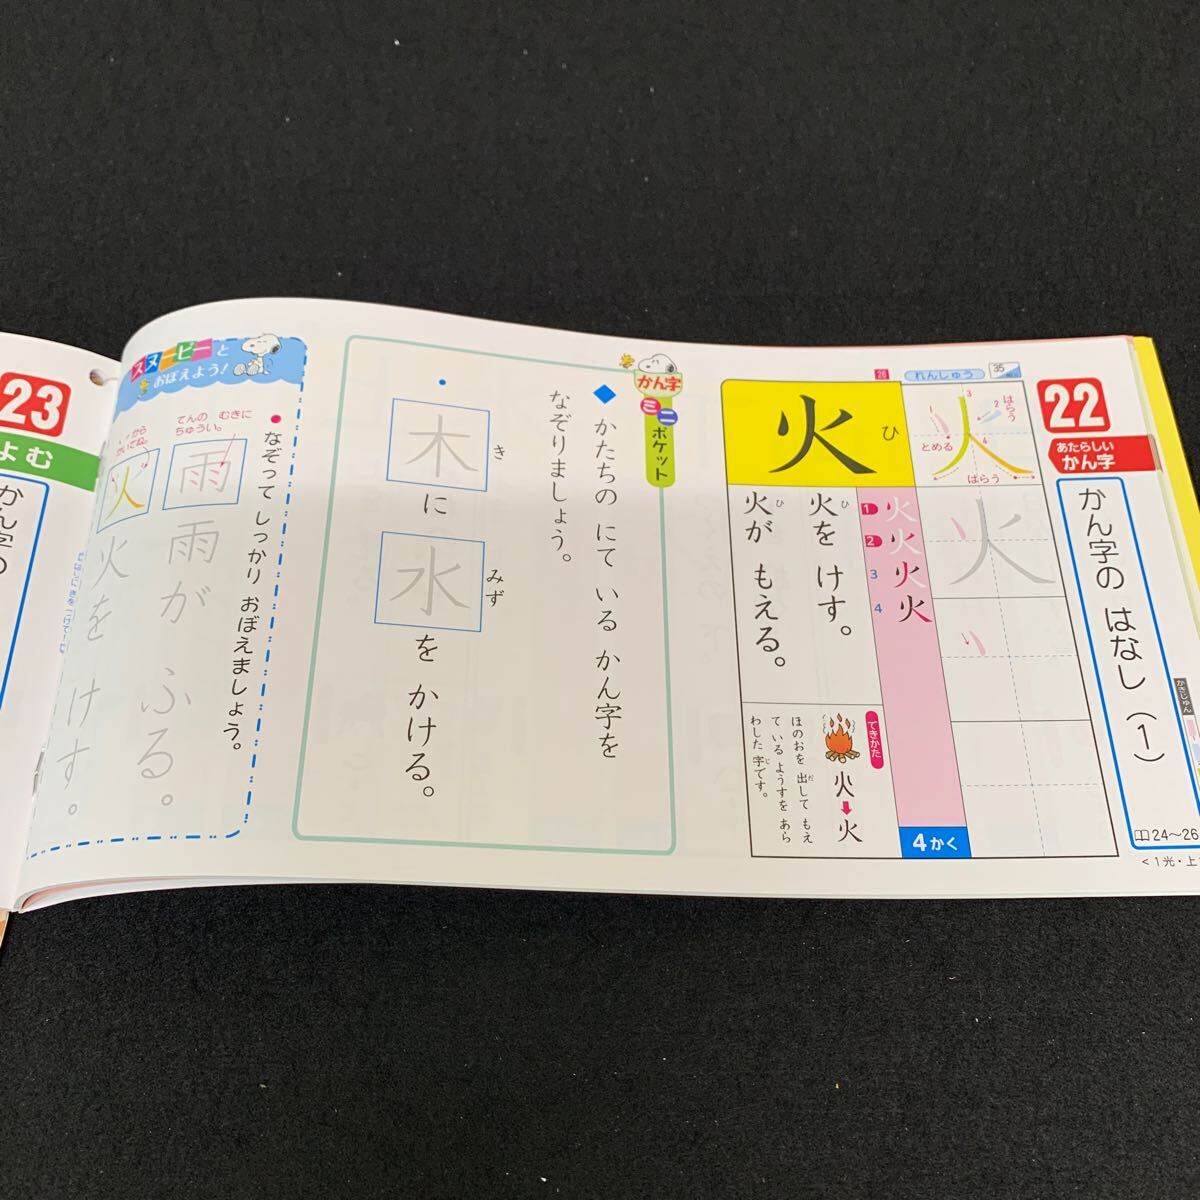 22
あたらしい
かん字
かん字の はなし(1)
24〜26
<1光・上
かきじゅん
れんしゅう
35
26
1
2
3
4
はらう
とめる
はらう
火
火
ひ
火
1 火
2 火
3 火
4 火
4かく
ひ
火を けす。
ひ
火が もえる。
できかた
火
火
ほのおを 出して もえ
だ
て いる ようすを あら
わした 字です。
じ
かん字
ミニ
ポケット
かたちの にて いる かん字を
なぞりましょう。
木に 水を かける。
き
みず
スヌーピーと
おぼえよう!
なぞって しっかり おぼえましょう。
てんの むきに
ちゅうい。
雨
雨が ふる。
火
火を けす。
23
よむ
かん字の